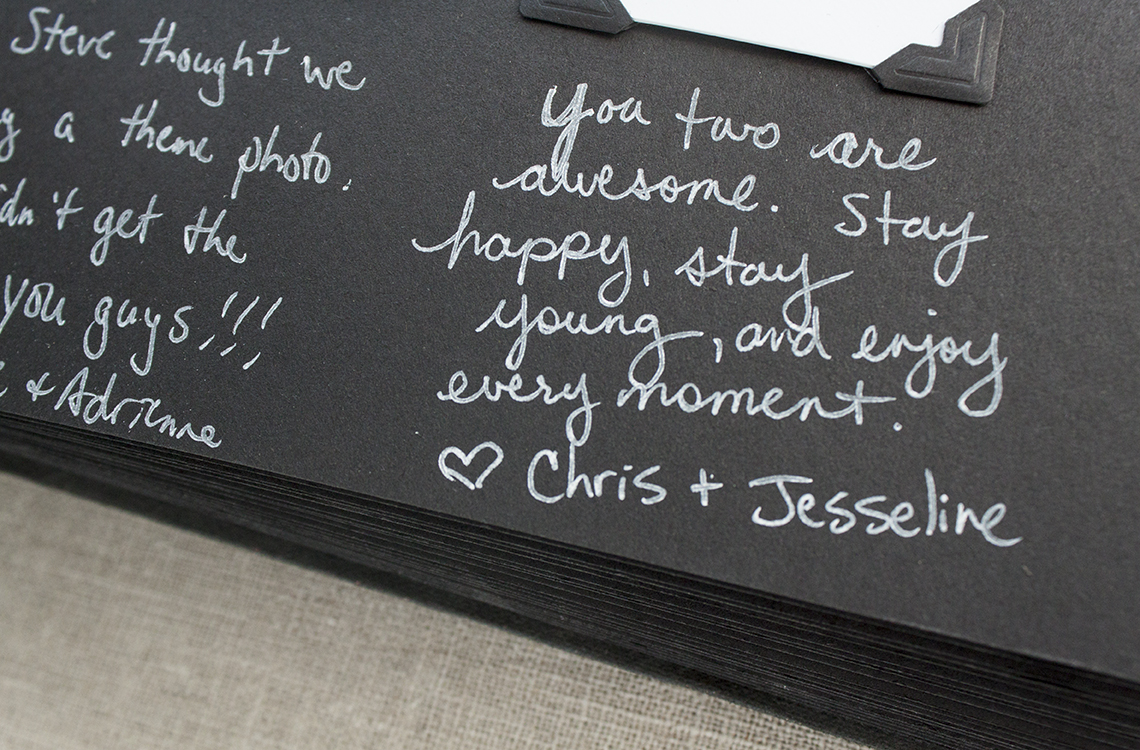 Steve thought we
a theme photo.
get the
you guys!!!
& Adrienne
You two are
awesome. Stay
happy, stay
young, and enjoy
every moment.
♡ Chris + Jesseline